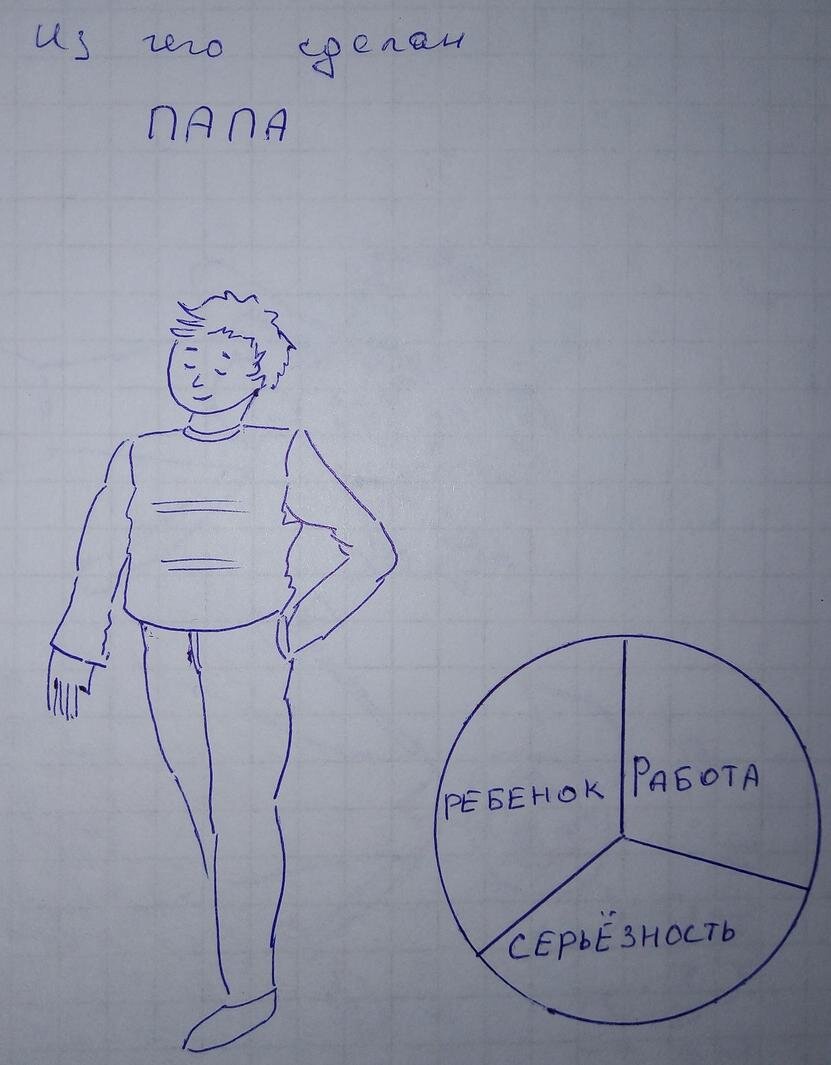 Из чего сделан
ПАПА
РЕБЕНОК
РАБОТА
СЕРЬЁЗНОСТЬ